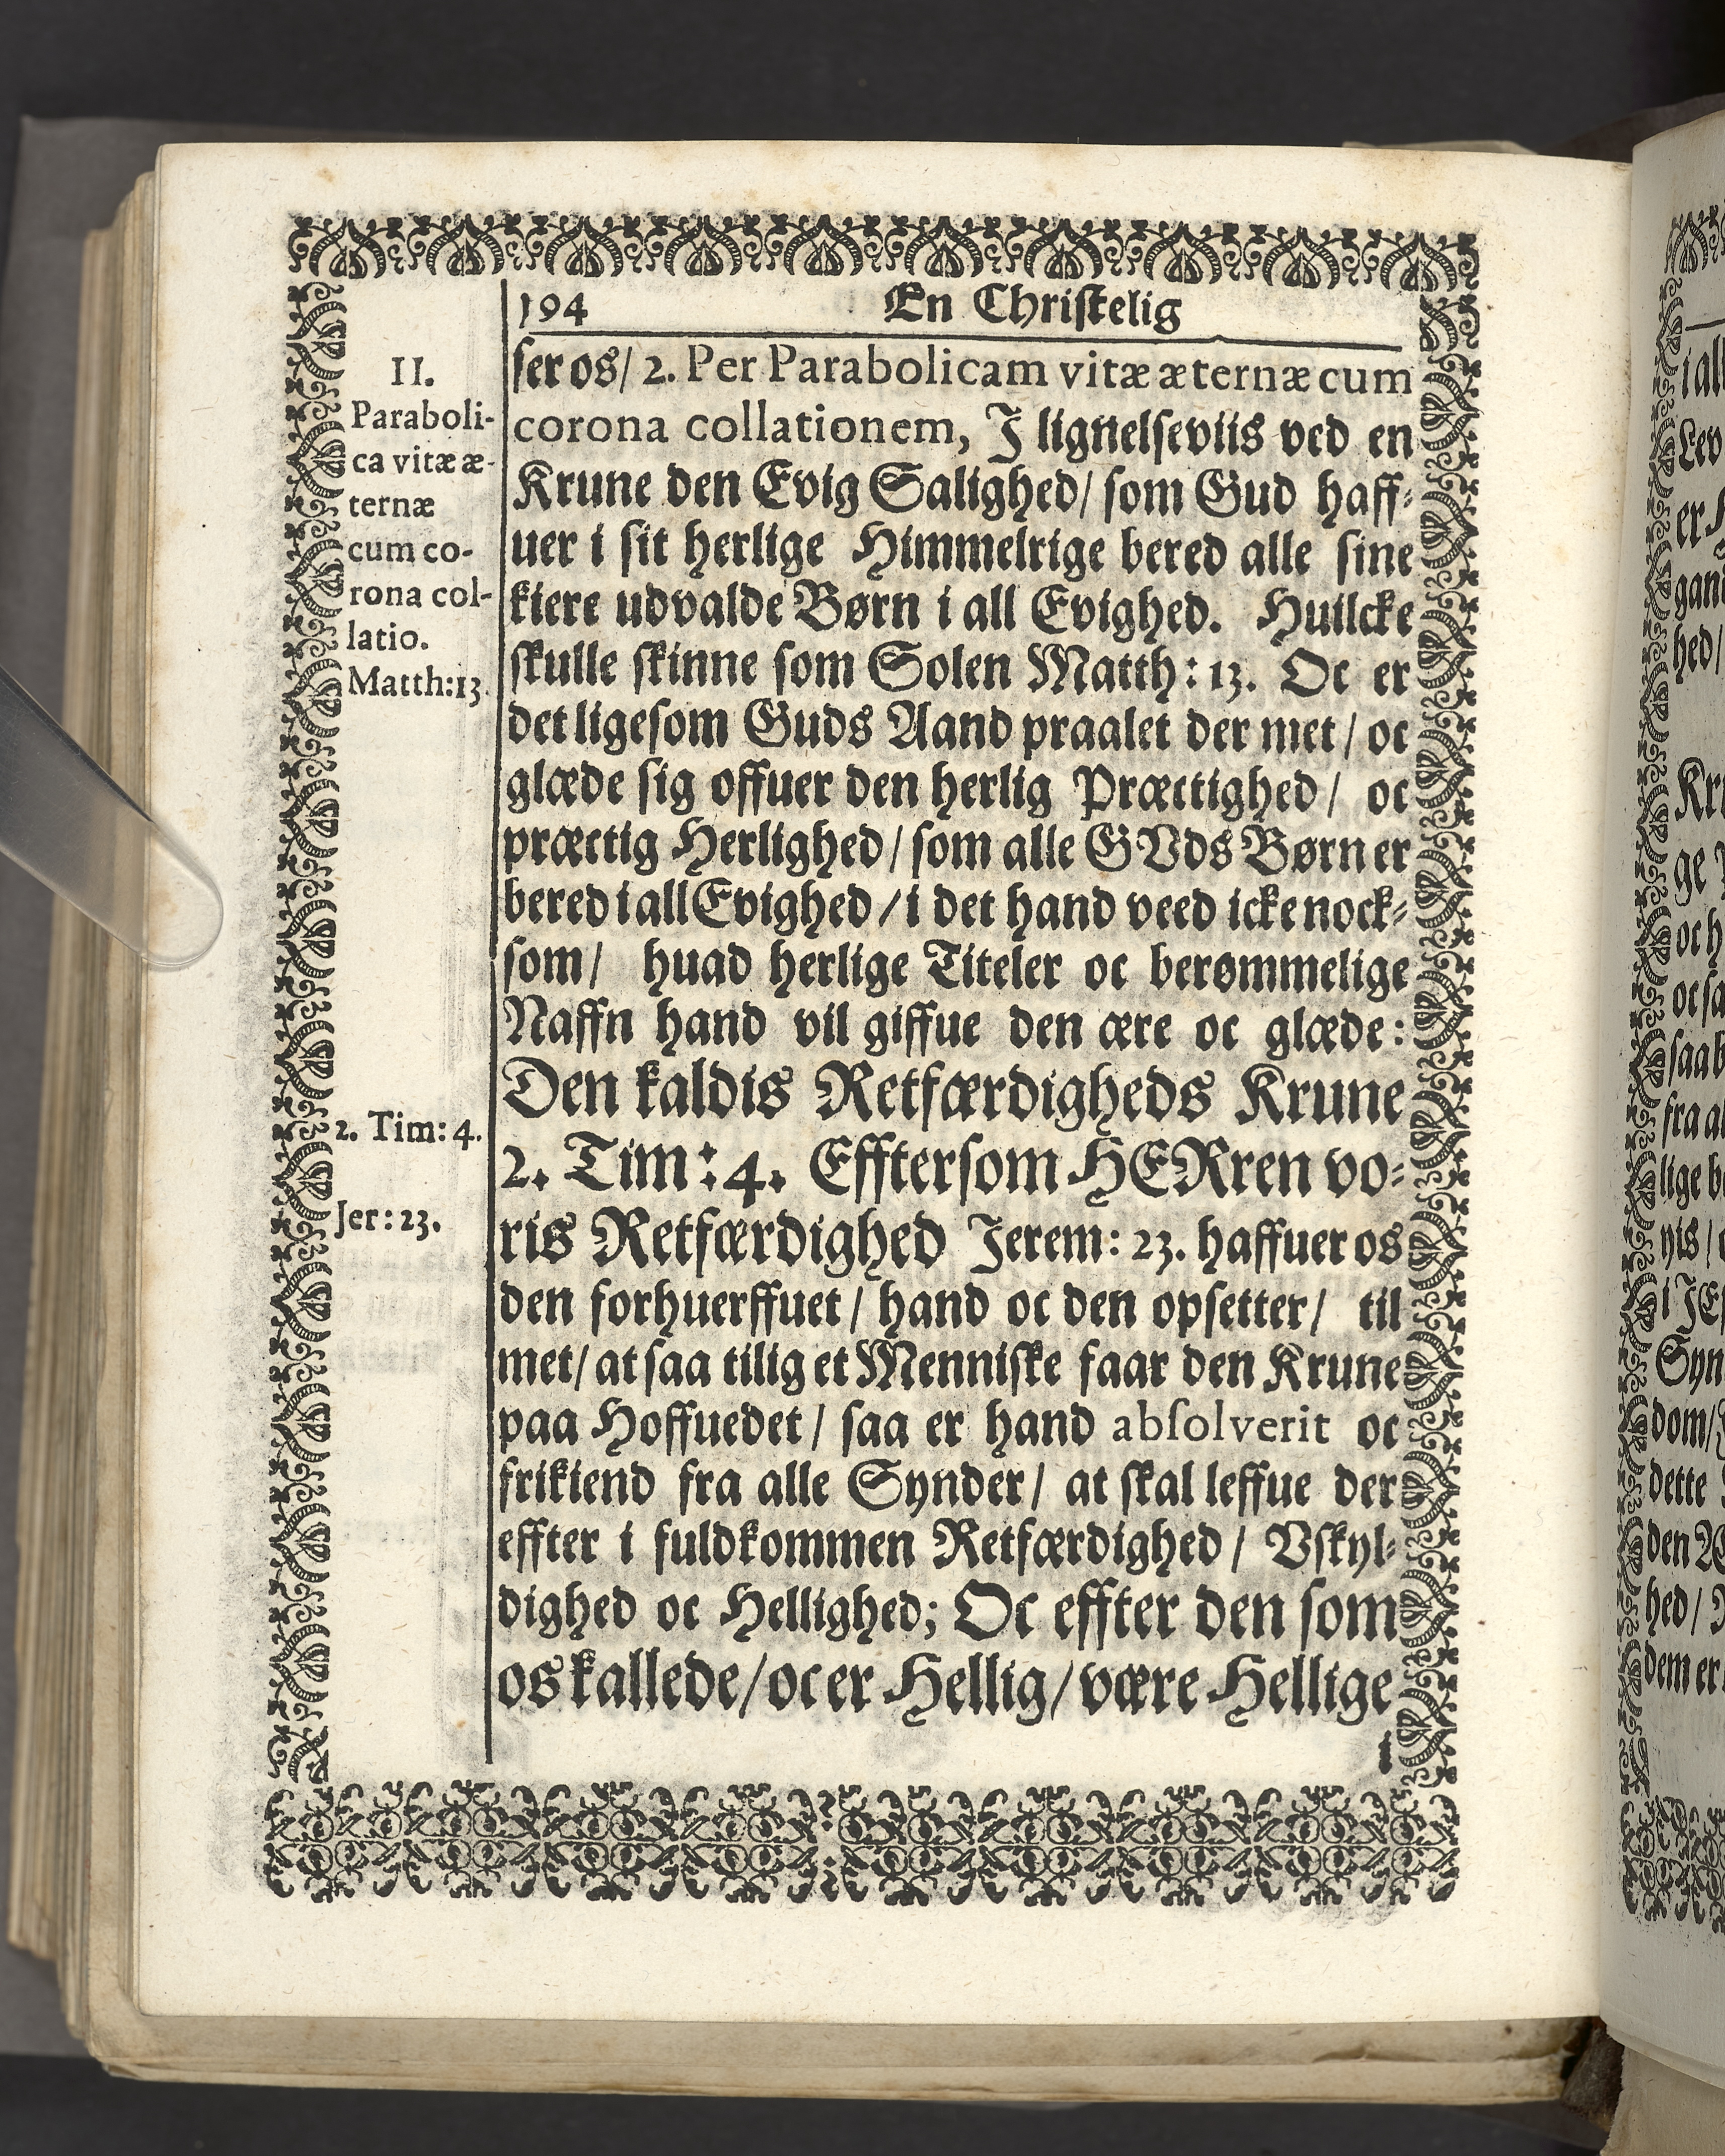 194 En Christelig
II.
Paraboli-
ca vitæ æ-
ternæ
cum co-
rona col-
latio.
Matth:13.
2. Tim: 4.
Jer: 23.
ser os/ 2. Per Parabolicam vitæ æternæ cum
corona collationem, J lignelseviis ved en
Krune den Evig Salighed/ som Gud haff-
uer i sit herlige Himmelrige bered alle sine
kiere udvalde Børn i all Evighed. Huilcke
skulle skinne som Solen Matth: 13. Oc er
det ligesom Guds Aand praalet der met/ oc
glæde sig offuer den herlig Præctighed/ oc
præctig Herlighed/ som alle GVds Børn er
bered i all Evighed/ i det hand veed icke nock-
som/ huad herlige Titeler oc berømmelige
Naffn hand vil giffue den ære oc glæde:
Den kaldis Retfærdigheds Krune
2. Tim: 4. Efftersom HERren vo-
ris Retfærdighed Jerem: 23. haffuer os
den forhuerffuet/ hand oc den opsetter/ til
met/ at saa tilig et Menniske faar den Krune
paa Hoffuedet/ saa er hand absolverit oc
frikiend fra alle Synder/ at skal leffue der
effter i fuldkommen Retfærdighed/ Vskyl-
dighed oc Hellighed; Oc effter den som
os kallede/ oc er Hellig/ være Hellige
i
i all
Lev
hed/
Kr
ge
oc h
oc sa
saa b
fra al
lige b
i JE
Syn
dom/
dette
den
hed/
dem er